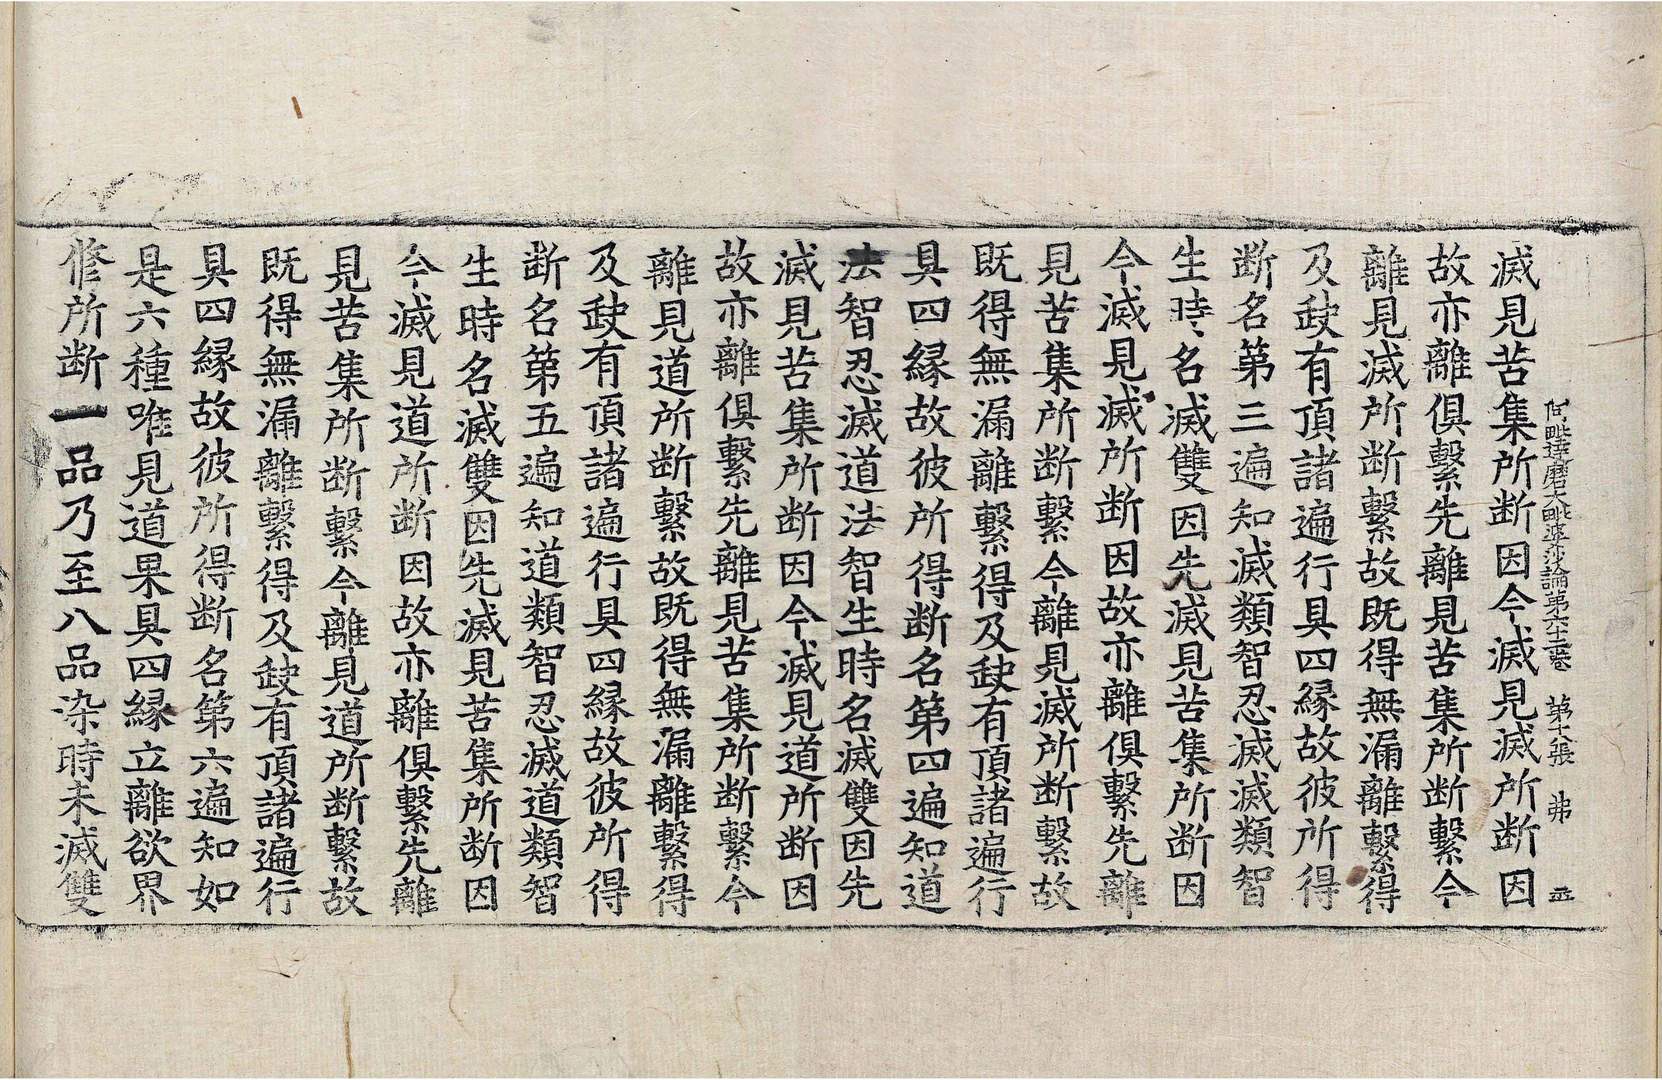 阿毗達磨大毗婆沙論第六十三卷　第十八張　弗
滅見苦集所断因今滅見滅所断因
故亦離俱繫先離見苦集所断繫今
離見滅所断繫故既得無漏離繫得
及𡙇有頂諸遍行具四縁故彼所得
断名第三遍知滅類智忍滅滅類智
生時名滅雙因先滅見苦集所断因
今滅見滅所断因故亦離俱繫先離
見苦集所断繫今離見滅所断繫故
既得無漏離繫得及𡙇有頂諸遍行
具四縁故彼所得断名第四遍知道
法智忍滅道法智生時名滅雙因先
滅見苦集所断因今滅見道所断因
故亦離俱繫先離見苦集所断繫今
離見道所断繫故既得無漏離繫得
及𡙇有頂諸遍行具四縁故彼所得
断名第五遍知道類智忍滅道類智
生時名滅雙因先滅見苦集所断因
今滅見道所断因故亦離俱繫先離
見苦集所断繫今離見道所断繫故
既得無漏離繫得及𡙇有頂諸遍行
具四縁故彼所得断名第六遍知如
是六種唯見道果具四縁立離欲界
修所断一品乃至八品染時未滅雙